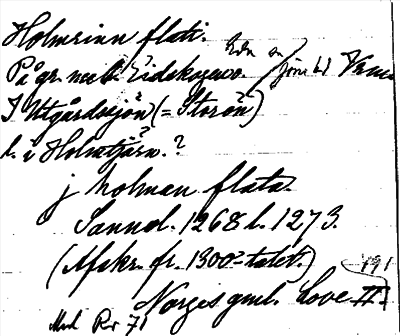 Holmrinn flati.
På gr. mell. Eidskogero.
I Utgårdssjön (= Storön)
l. i Holmtjärn. ?
j holman flata.
Sannol. 1268 l. 1273.
(Afskr. fr. 1300-talet.)
Norges gml. Love II 491
Med Rv 71